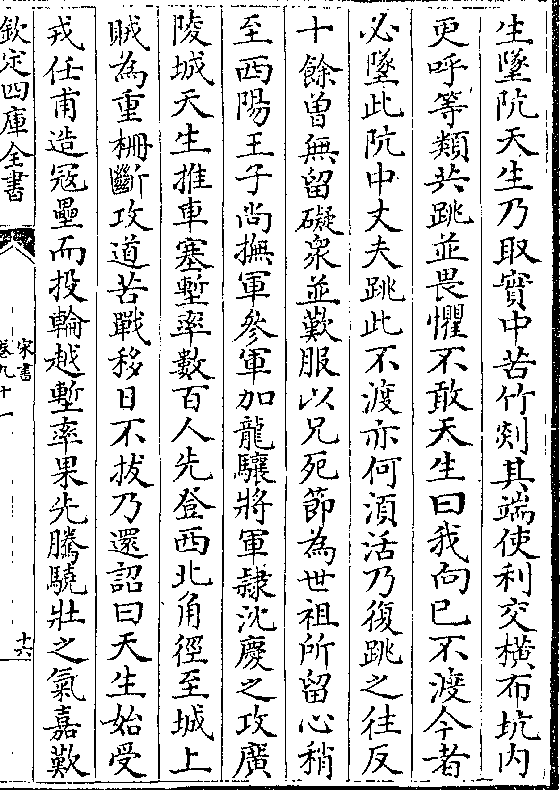 生墜阬天生乃取實中苦竹剡其端使利交橫布坑内
更呼等類共跳並畏懼不敢天生曰我向已不渡今者
必墜此阬中丈夫跳此不渡亦何湏活乃復跳之往反
十餘曽無留礙衆並歎服以兄死節為世祖所留心稍
至西陽王子尚撫軍參軍加龍驤將軍隷沈慶之攻廣
陵城天生推車塞塹率數百人先登西北角徑至城上
賊為重栅斷攻道苦戰移日不拔乃還詔曰天生始受
戎任甫造冦壘而投輪越塹率果先騰驍壯之氣嘉歎
欽定四庫全書
宋書
卷九十一
十六